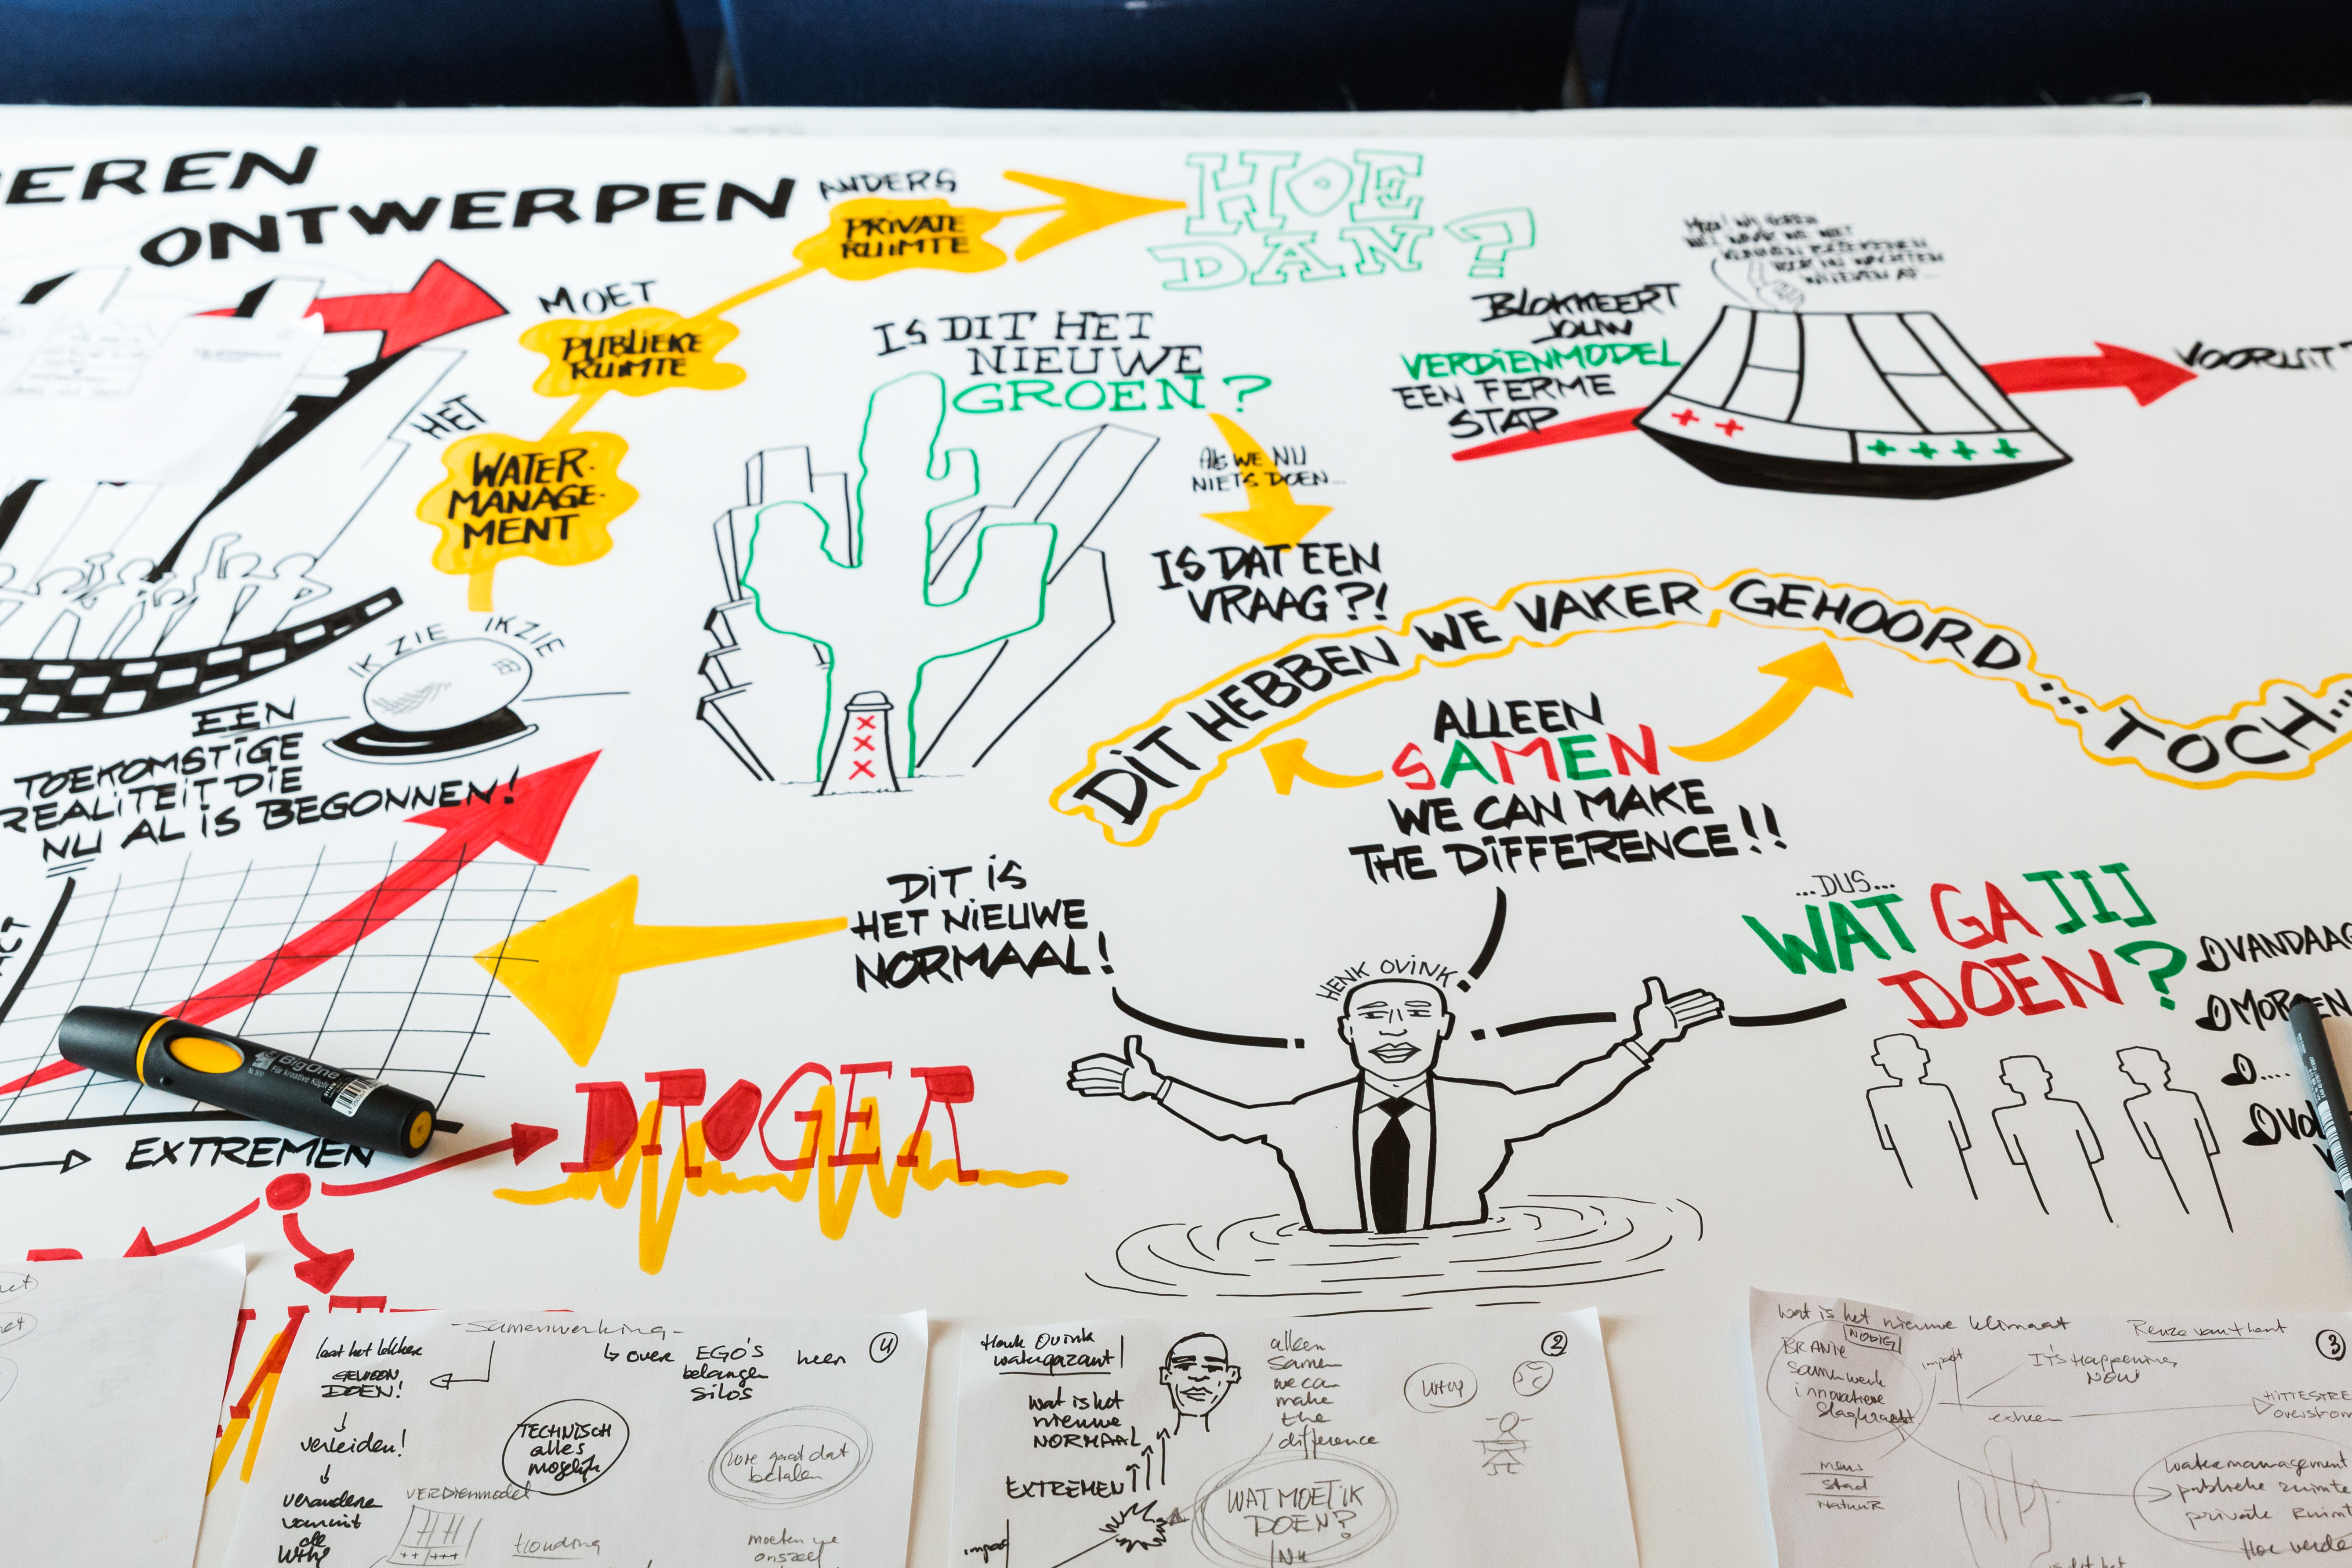 EREN
ONTWERPEN
ANDERS
PRIVATE
RUIMTE
HOE
DAN?
MOET
PUBLIEKE
RUIMTE
HET
WATER-
MANAGE-
MENT
IS DIT HET
NIEUWE
GROEN?
ALS WE NU
NIETS DOEN...
IS DAT EEN
VRAAG?!
BLOKKEERT
JOUW
VERDIENMODEL
EEN FERME
STAP
++
++++
VOORUIT?
IK ZIE IK ZIE
EEN
TOEKOMSTIGE
REALITEIT DIE
NU AL IS BEGONNEN!
XXX
DIT HEBBEN WE VAKER GEHOORD...
TOCH...
ALLEEN
SAMEN
WE CAN MAKE
THE DIFFERENCE!!
DIT IS
HET NIEUWE
NORMAAL!
HENK OVINK
...DUS...
WAT GA JIJ
DOEN?
VANDAAG
MORGEN
....
VOL
EXTREMEN
DROGER
BigOne
Für kreative Köpfe
- Samenwerking -
4
laat het lekker
GEWOON
DOEN!
↳ over EGO'S heen
belangen
SILOS
verleiden!
TECHNISCH
alles
mogelijk
hoe gaat dat
betalen
veranderen
vanuit
de
WHY
VERDIENmodel
Houding
moeten we
onszelf
Henk Ovink
watergezant
2
wat is het
nieuwe
NORMAAL
EXTREMEN
impact
alleen
Samen
we can
make
the
difference
WHY
WAT MOET IK
DOEN?
NU
wat is het nieuwe klimaat
3
NODIG
BRANIE
Samenwerk
innovatieve
Slagkracht
impact
It's Happening
NOW
extreem
HITTESTRE
overstrom
mens
stad
NATUUR
watermanagement
publieke ruimte
private Ruimt
Hoe verde
is dit het